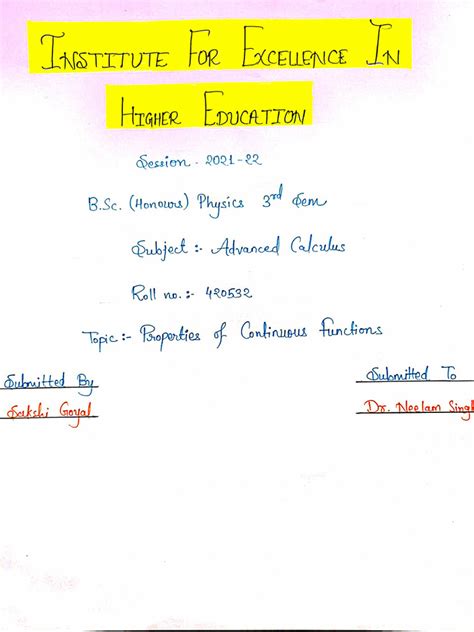 INSTITUTE FOR EXCELLENCE IN
HIGHER EDUCATION
Session. 2021-22
B.Sc. (Honours) Physics 3rd Sem
Subject :- Advanced Calculus
Roll no. :- 420532
Topic :- Properties of Continuous functions
Submitted By
Sakshi Goyal
Submitted To
Dr. Neelam Singh